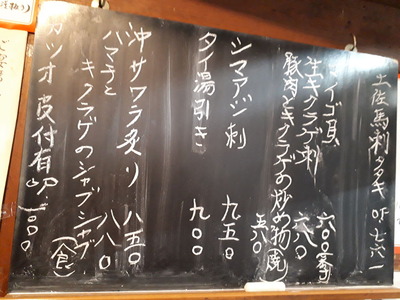 土佐馬刺タタキ
マイゴ貝 六〇〇
生キクラゲ刺 六八〇
豚肉とキクラゲの炒め物 五八〇
シマアジ刺 九五〇
タイ湯引き 九〇〇
沖サワラ炙り 八五〇
ハマチと
キクラゲのシャブシャブ 八八〇
カツオ皮付有 一〇〇〇
(食)